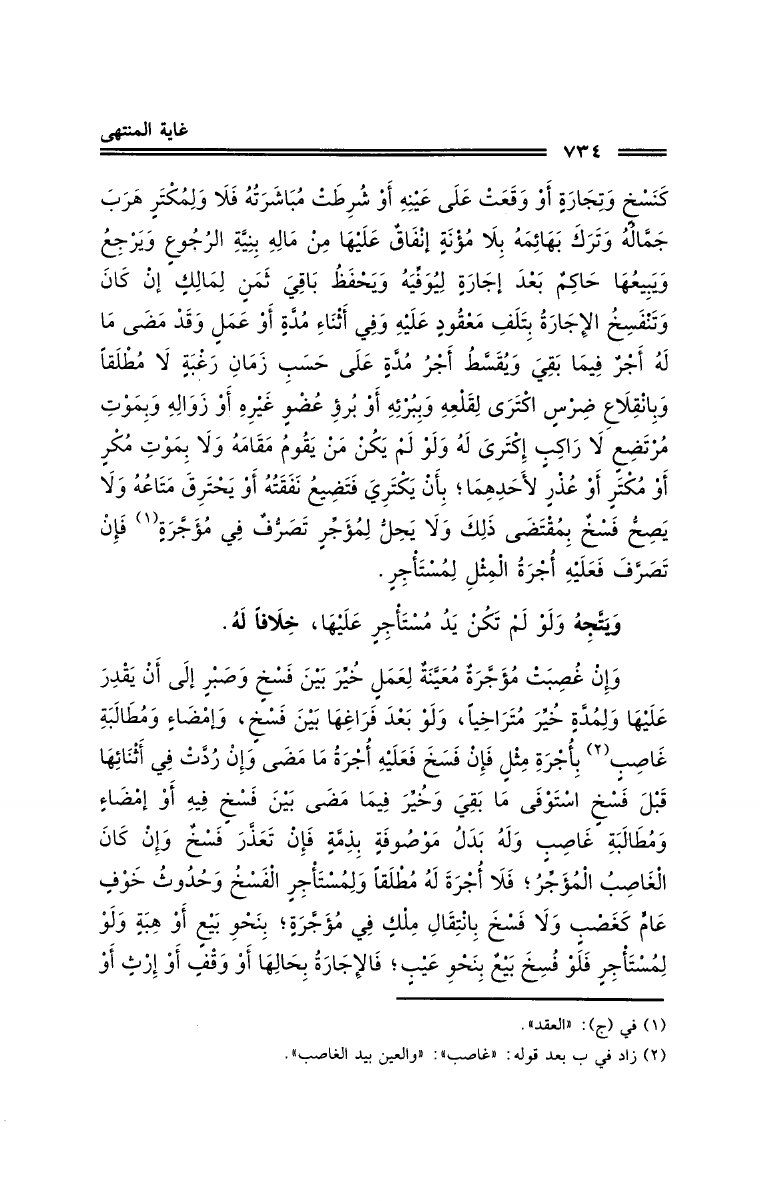 غاية المنتهى
٧٣٤
كَنَسْخٍ وَتِجَارَةٍ أَوْ وَقَعَتْ عَلَى عَيْنِهِ أَوْ شُرِطَتْ مُبَاشَرَتُهُ فَلَا وَلِمُكْتَرٍ هَرَبَ
جَمَّالُهُ وَتَرَكَ بَهَائِمَهُ بِلَا مُؤْنَةٍ إنْفَاقٌ عَلَيْهَا مِنْ مَالِهِ بِنِيَّةِ الرُجُوعِ وَيَرْجِعُ
وَيَبِيعُهَا حَاكِمٌ بَعْدَ إجَارَةٍ لِيُوَفِّيَهُ وَيَحْفَظُ بَاقِيَ ثَمَنٍ لِمَالِكٍ إنْ كَانَ
وَتَنْفَسِخُ الإجَارَةُ بِتَلَفِ مَعْقُودٍ عَلَيْهِ وَفِي أَثْنَاءِ مُدَّةٍ أَوْ عَمَلٍ وَقَدْ مَضَى مَا
لَهُ أَجْرٌ فِيمَا بَقِيَ وَيُقَسَّطُ أَجْرُ مُدَّةٍ عَلَى حَسَبِ زَمَانِ رَغْبَةٍ لَا مُطْلَقاً
وَبِانْقِلَاعِ ضِرْسٍ اكْتَرَى لِقَلْعِهِ وَبِبُرْئِهِ أَوْ بُرؤِ عُضْوٍ غَيْرِهِ أَوْ زَوَالِهِ وَبِمَوْتِ
مُرْتَضِعٍ لَا رَاكِبٍ إكْتَرَىَ لَهُ وَلَوْ لَمْ يَكُنْ مَنْ يَقُومُ مَقَامَهُ وَلَا بِمَوْتِ مُكْرٍ
أَوْ مُكْتَرٍ أَوْ عُذْرٍ لأَحَدِهِمَا؛ بِأَنْ يَكْتَرِيَ فَتَضِيعُ نَفَقَتُهُ أَوْ يَحْتَرِقَ مَتَاعُهُ وَلَا
يَصِحُّ فَسْخٌ بِمُقْتَضَى ذَلِكَ وَلَا يَحِلُّ لِمُؤَجِّرٍ تَصَرُّفٌ فِي مُؤَجَّرَةٍ(١) فَإِنْ
تَصَرَّفَ فَعَلَيْهِ أُجْرَةُ الْمِثْلِ لِمُسْتَأْجِرٍ.
وَيَتَّجِهُ وَلَوْ لَمْ تَكُنْ يَدُ مُسْتَأْجِرٍ عَلَيْهَا، خِلَافاً لَهُ.
وَإِنْ غُصِبَتْ مُؤَجَّرَةٌ مُعَيَّنَةٌ لِعَمَلٍ خُيِّرَ بَيْنَ فَسْخٍ وَصَبْرٍ إلَى أَنْ يَقْدِرَ
عَلَيْهَا وَلِمُدَّةٍ خُيِّرَ مُتَرَاخِياً، وَلَوْ بَعْدَ فَرَاغِهَا بَيْنَ فَسْخٍ، وَإمْضَاءٍ وَمُطَالَبَةِ
غَاصِبٍ(٢) بِأُجْرَةِ مِثْلٍ فَإِنْ فَسَخَ فَعَلَيْهِ أُجْرَةُ مَا مَضَى وَإِنْ رُدَّتْ فِي أَثْنَائِهَا
قَبْلَ فَسْخٍ اسْتَوْفَى مَا بَقِيَ وَخُيِّرَ فِيمَا مَضَى بَيْنَ فَسْخٍ فِيهِ أَوْ إمْضَاءٍ
وَمُطَالَبَةِ غَاصِبٍ وَلَهُ بَدَلُ مَوْصُوفَةٍ بِذِمَّةٍ فَإِنْ تَعَذَّرَ فَسْخٌ وَإِنْ كَانَ
الْغَاصِبُ الْمُؤَجِّرُ؛ فَلَا أُجْرَةَ لَهُ مُطْلَقاً وَلِمُسْتَأْجِرٍ الْفَسْخُ وَحُدُوثُ خَوْفٍ
عَامٍّ كَغَصْبٍ وَلَا فَسْخَ بِانْتِقَالِ مِلْكٍ فِي مُؤَجَّرَةٍ؛ بِنَحْوِ بَيْعٍ أَوْ هِبَةٍ وَلَوْ
لِمُسْتَأْجِرٍ فَلَوْ فُسِخَ بَيْعٌ بِنَحْوِ عَيْبٍ؛ فَالإجَارَةُ بِحَالِهَا أَوْ وَقْفٍ أَوْ إرْثٍ أَوْ
(١) في (ج): «العقد».
(٢) زاد في ب بعد قوله: «غاصب»: «والعين بيد الغاصب».